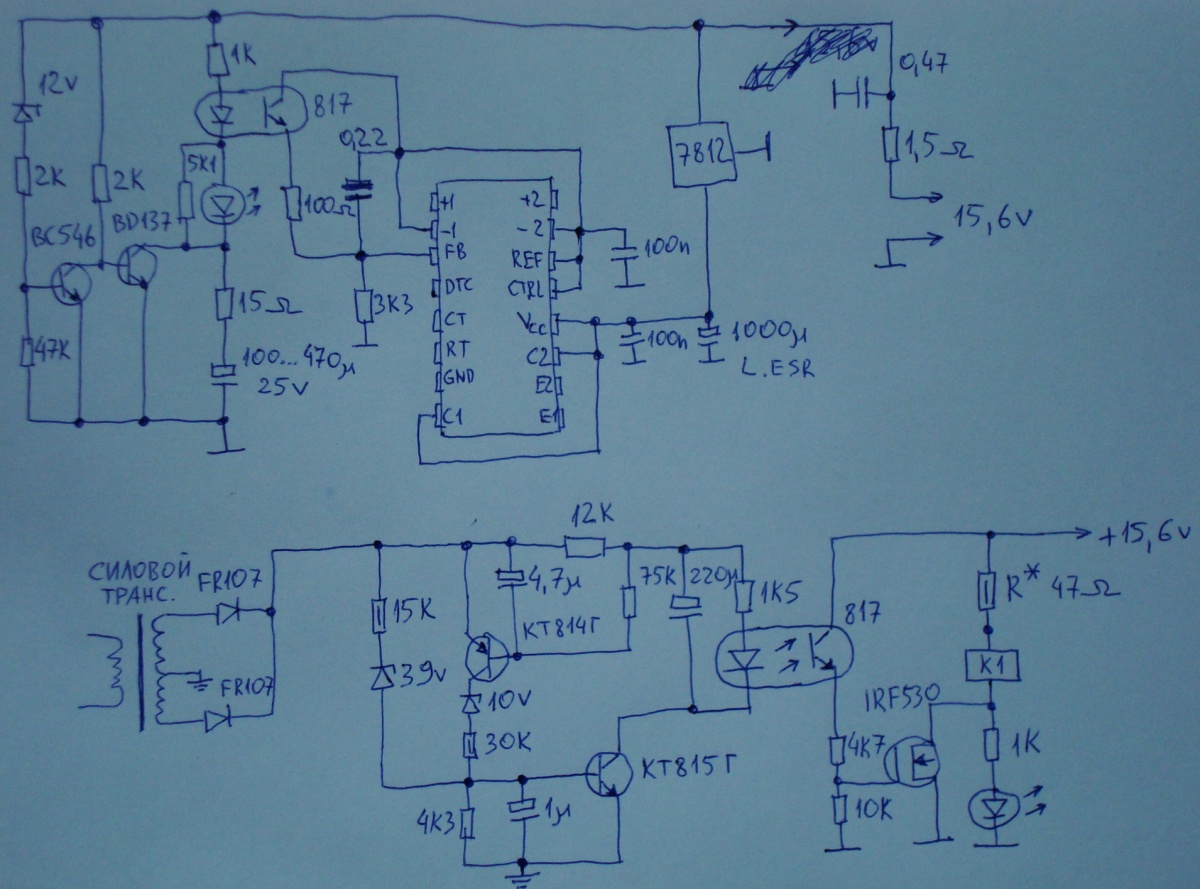 12v
1K
817
0,47
2K
2K
5K1
0,22
7812
1,5Ω
100Ω
+1
+2
BC546
BD137
-1
-2
15,6v
FB
REF
100n
DTC
CTRL
15Ω
3K3
CT
Vcc
47K
100...470μ
25v
RT
C2
100n
1000μ
L.ESR
GND
E2
C1
E1
12K
+15,6v
СИЛОВОЙ
ТРАНС.
FR107
4,7μ
75K
220μ
1K5
R* 47Ω
15K
КТ814Г
817
K1
39v
FR107
10v
IRF530
30K
КТ815Г
4K7
1K
4K3
1μ
10K